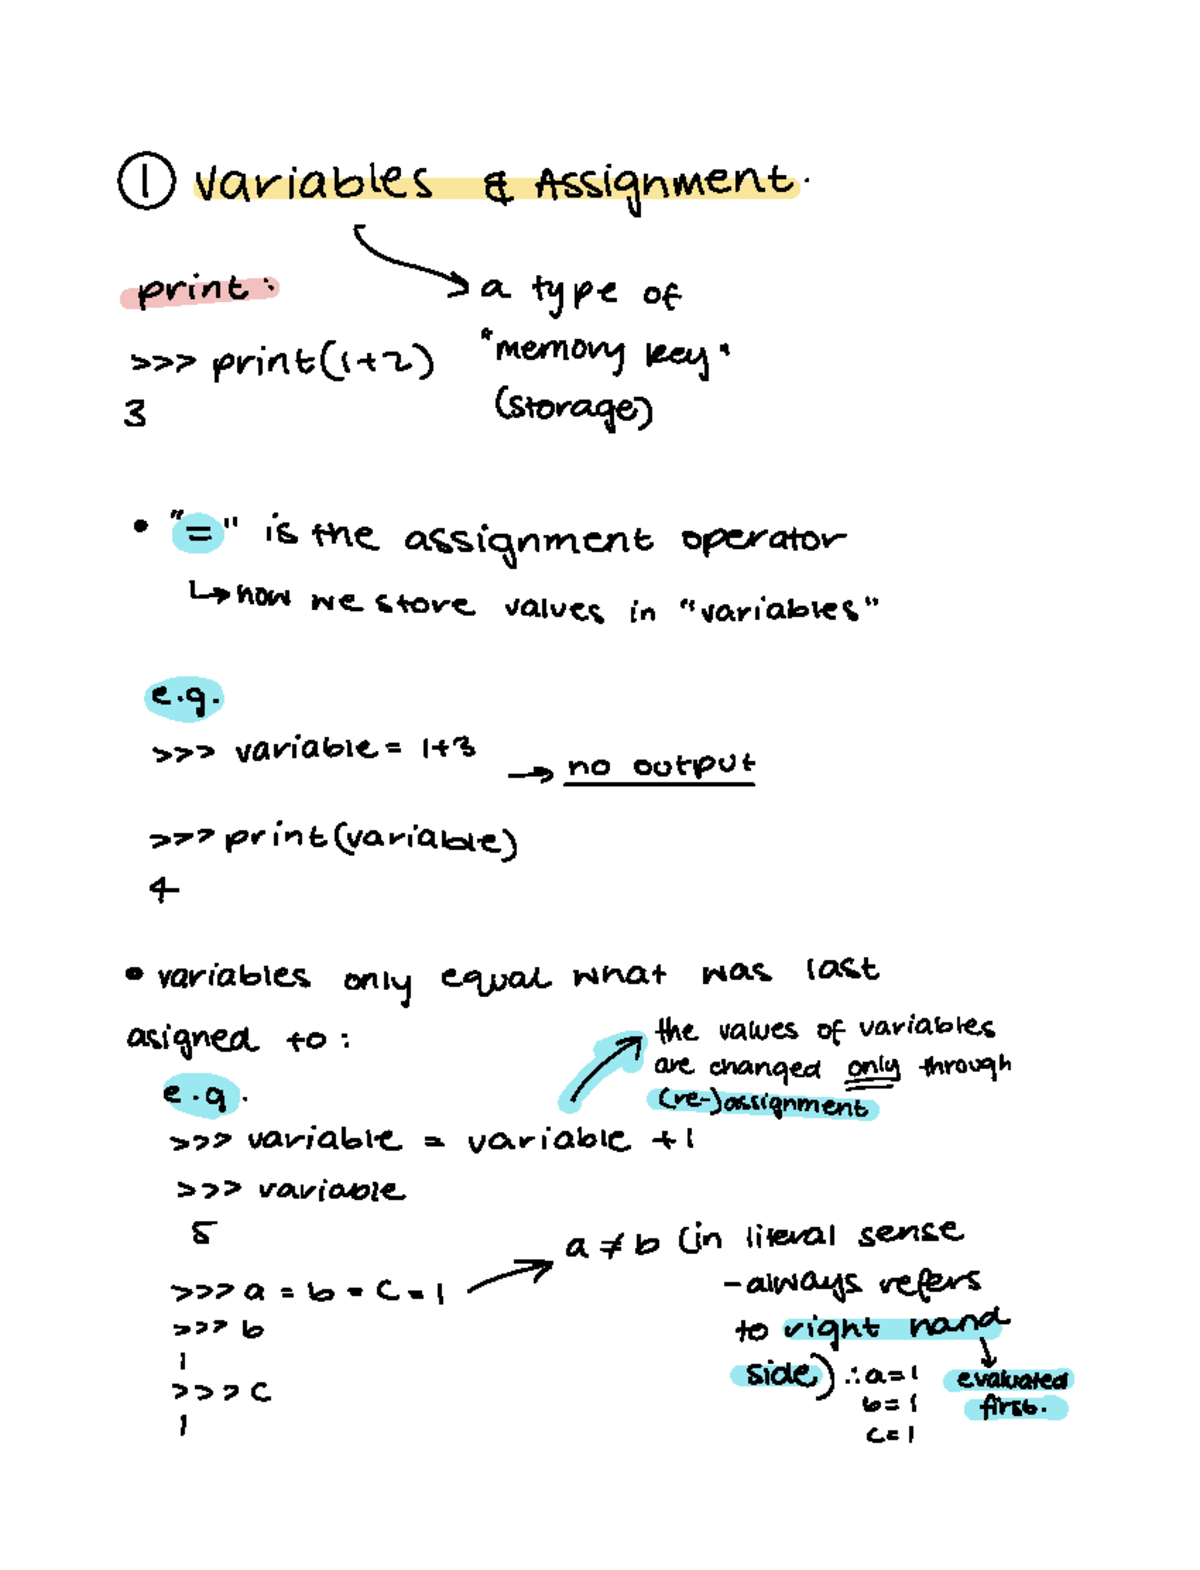 ① Variables & Assignment.
print:
→ a type of
"memory key"
(storage)
>>> print(1+2)
3
• "=" is the assignment operator
↳ how we store values in "variables"
e.g.
>>> variable = 1+3
→ no output
>>> print(variable)
4
• variables only equal what was last
asigned to:
the values of variables
are changed only through
(re-)assignment
e.g.
>>> variable = variable +1
>>> variable
5
>>> a = b = c = 1
a ≠ b (in literal sense
- always refers
to right hand
side)
evaluated
first.
∴ a=1
b=1
c=1
>>> b
1
>>> c
1